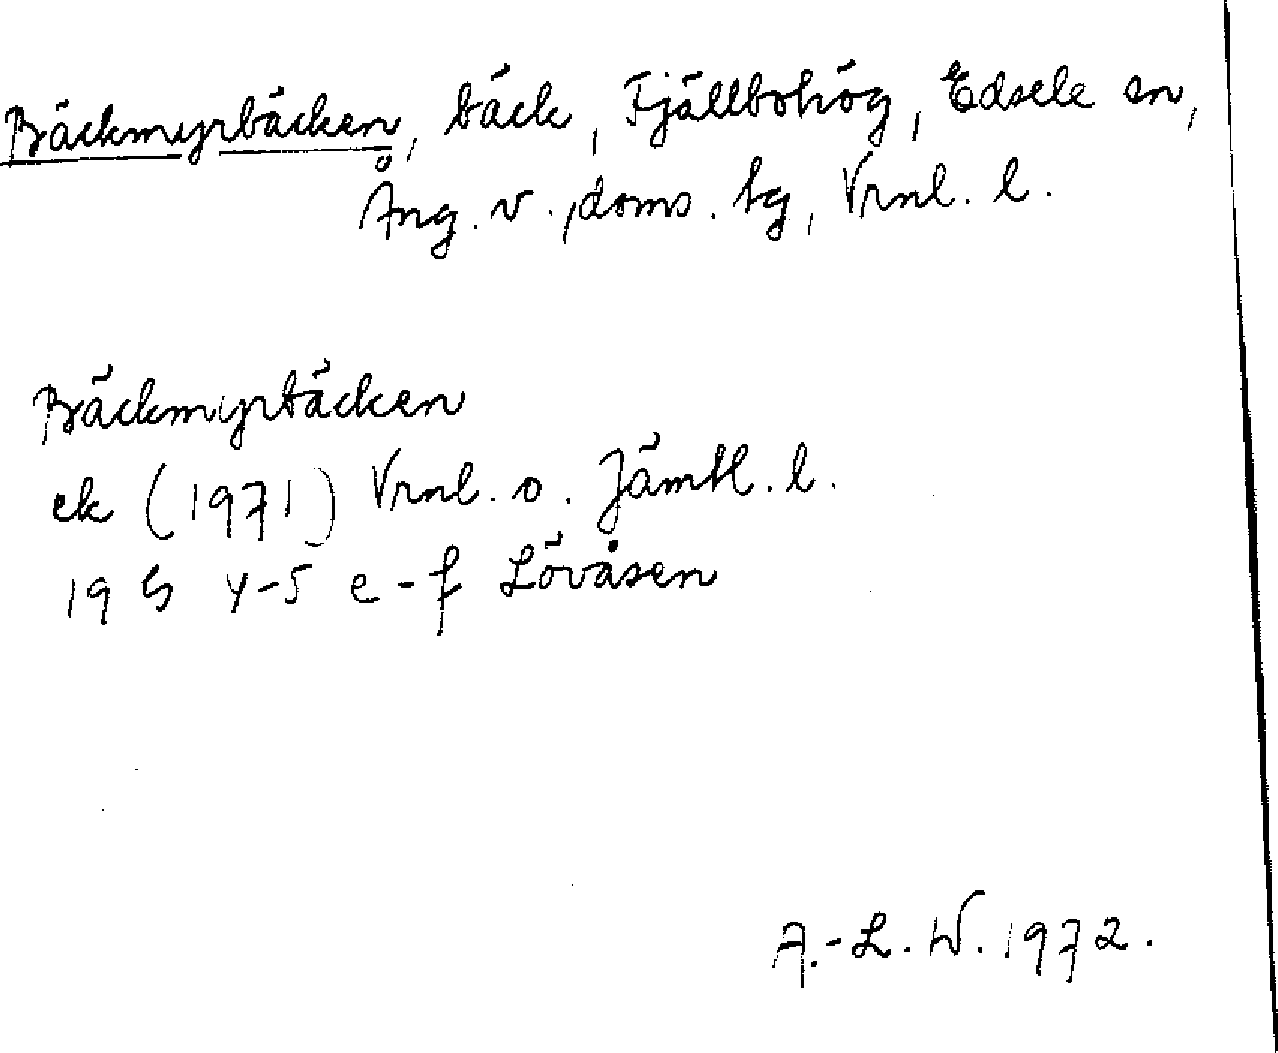 Bäckmyrbäcken, bäck, Fjällbohög, Edsele sn,
Ång. v., doms. bg, Vrnl. l.
Bäckmyrbäcken
ek (1971) Vrnl. o. Jämtl. l.
19 G 4-5 e-f Lövåsen
A.-L. W. 1972.